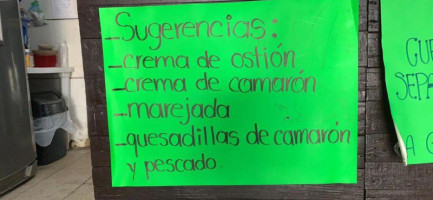 Sugerencias:
-crema de ostión
-crema de camarón
-marejada
-quesadillas de camarón
y pescado.
GUE
SEPA
A G